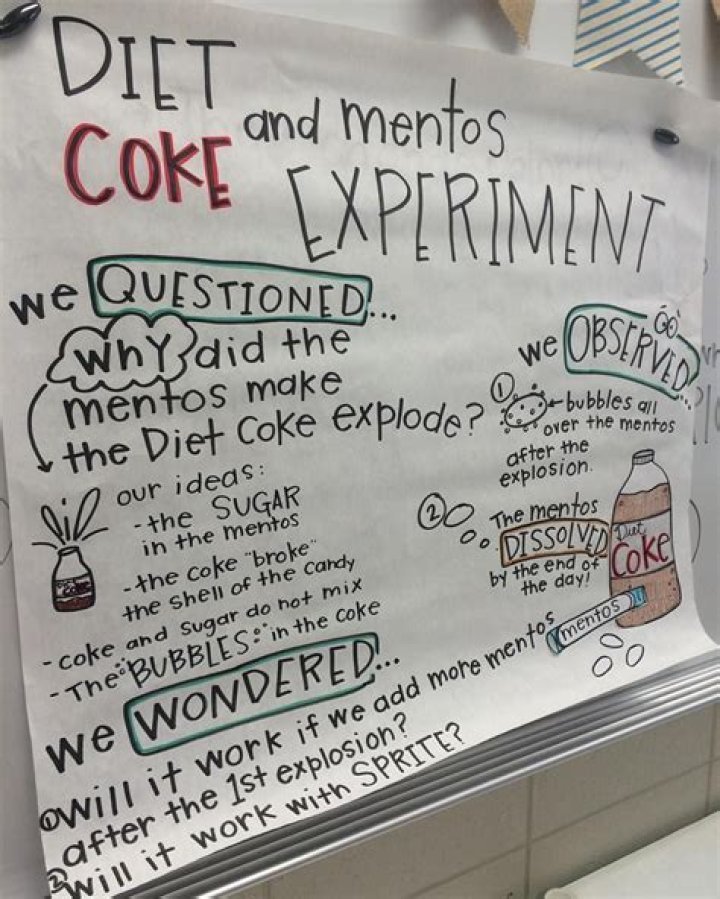 DIET
COKE
and mentos
EXPERIMENT
we QUESTIONED...
WHY did the
mentos make
the Diet Coke explode?
our ideas:
- the SUGAR
in the mentos
- the coke "broke"
the shell of the candy
- coke and sugar do not mix
- The "BUBBLES" in the coke
we OBSERVED...
① bubbles all
over the mentos
after the
explosion.
② The mentos
DISSOLVED
by the end of
the day!
Diet
Coke
mentos
we WONDERED...
① will it work if we add more mentos
after the 1st explosion?
② will it work with SPRITE?